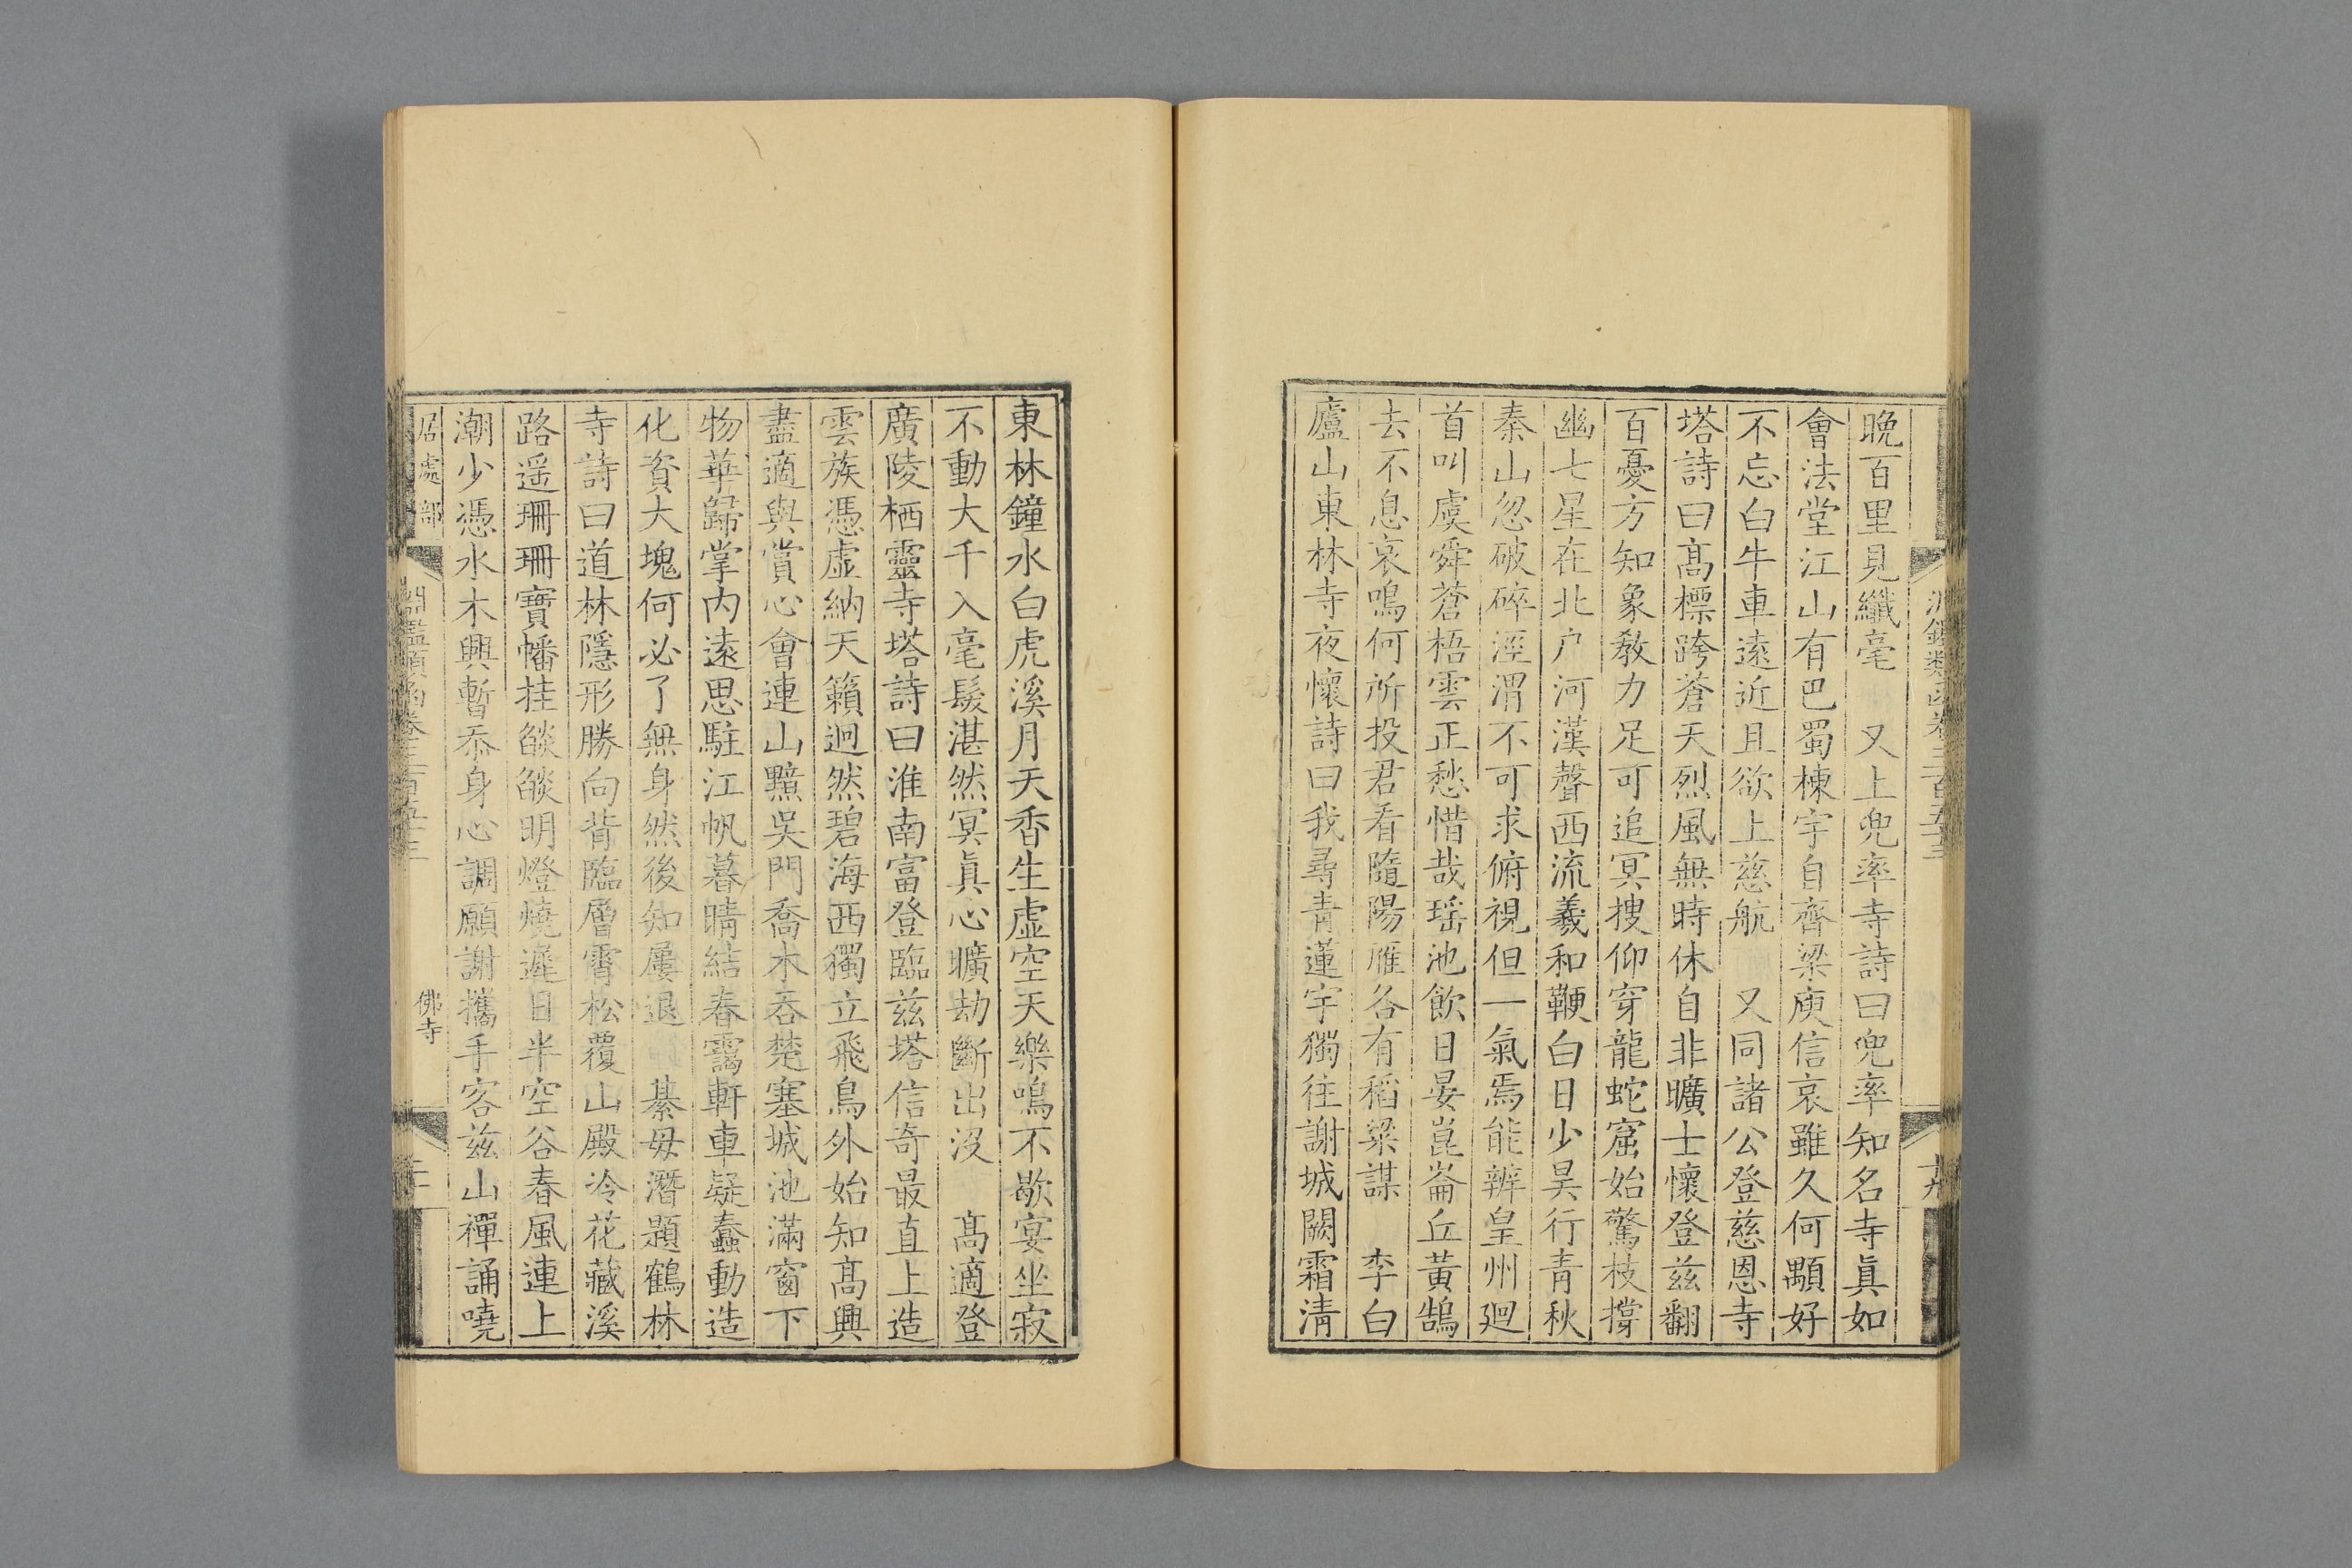 晚百里見纖毫　又上兜率寺詩曰兜率知名寺眞如
會法堂江山有巴蜀棟宇自齊梁庾信哀雖久何顒好
不忘白牛車遠近且欲上慈航　又同諸公登慈恩寺
塔詩曰髙標跨蒼天烈風無時休自非曠士懷登兹翻
百憂方知象敎力足可追冥搜仰穿龍蛇窟始驚枝撐
幽七星在北户河漢聲西流羲和鞭白日少昊行青秋
秦山忽破碎涇渭不可求俯視但一氣焉能辨皇州廻
首叫虞舜蒼梧雲正愁惜哉瑶池飲日晏崑崙丘黃鵠
去不息哀鳴何所投君看隨陽雁各有稻粱謀　李白
廬山東林寺夜懷詩曰我尋青蓮宇獨往謝城闕霜淸
東林鐘水白虎溪月天香生虚空天樂鳴不歇宴坐寂
不動大千入毫髮湛然冥眞心曠劫斷出沒　髙適登
廣陵栖靈寺塔詩曰淮南富登臨兹塔信奇最直上造
雲族憑虚納天籟迥然碧海西獨立飛鳥外始知髙興
盡適與賞心會連山黯吳門喬木吞楚塞城池滿窗下
物華歸掌内遠思駐江帆暮晴結春靄軒車疑蠢動造
化資大塊何必了無身然後知屢退　綦毋潛題鶴林
寺詩曰道林隱形勝向背臨層霄松覆山殿冷花藏溪
路遥珊珊寶幡挂燄燄明燈燒遲日半空谷春風連上
潮少憑水木興暫忝身心調願謝攜手客兹山禪誦嘵
居處部
佛寺